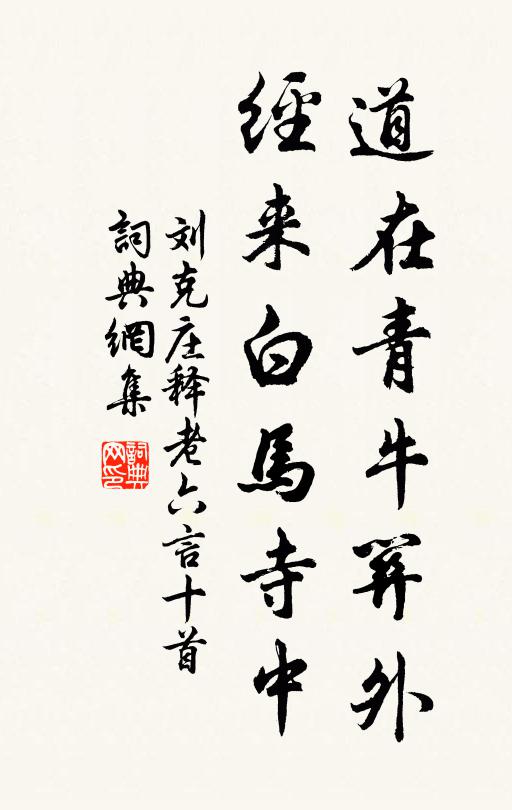 道在青牛关外
經来白馬寺中
刘克庄释老六言十首
詞典網集
詞典網印